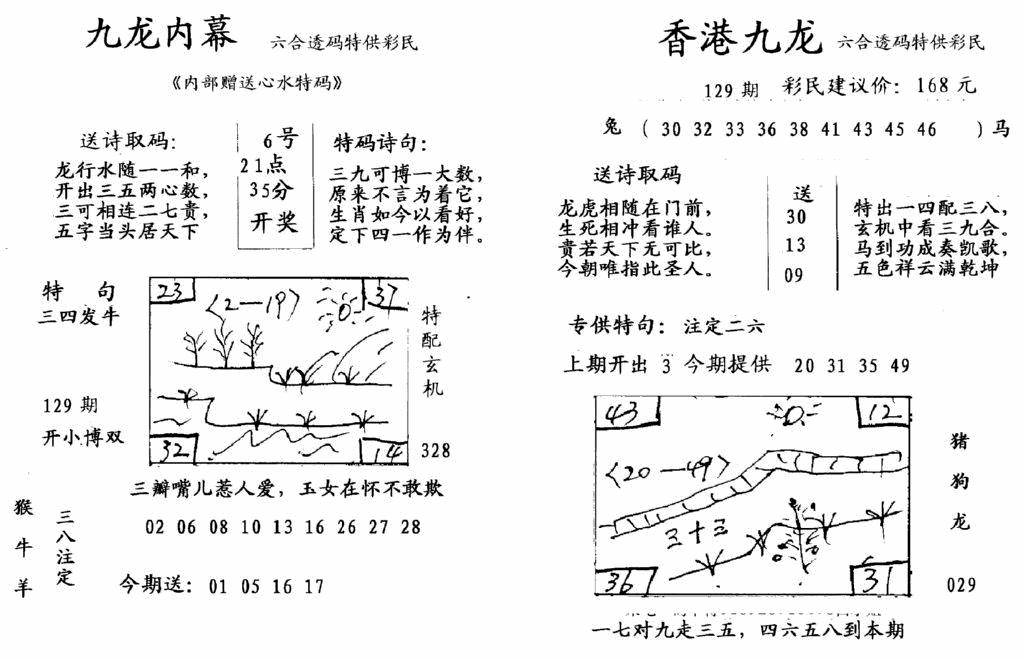 九龙内幕 六合透码特供彩民
《内部赠送心水特码》
送诗取码:
龙行水随一一和,
开出三五两心数,
三可相连二七贵,
五字当头居天下
6号
21点
35分
开奖
特码诗句:
三九可博一大数,
原来不言为着它,
生肖如今以看好,
定下四一作为伴。
特 句
三四发牛
129 期
开小博双
23
37
〈2—19〉
32
14
特配玄机
328
三瓣嘴儿惹人爱，玉女在怀不敢欺
猴牛羊
三八注定
02 06 08 10 13 16 26 27 28
今期送: 01 05 16 17
香港九龙 六合透码特供彩民
129 期 彩民建议价: 168 元
兔 ( 30 32 33 36 38 41 43 45 46 ) 马
送诗取码
龙虎相随在门前,
生死相冲看谁人。
贵若天下无可比,
今朝唯指此圣人。
送
30
13
09
特出一四配三八,
玄机中看三九合。
马到功成奏凯歌,
五色祥云满乾坤
专供特句: 注定二六
上期开出 3 今期提供 20 31 35 49
43
12
〈20—49〉
三十三
36
31
猪
狗
龙
029
一七对九走三五，四六五八到本期